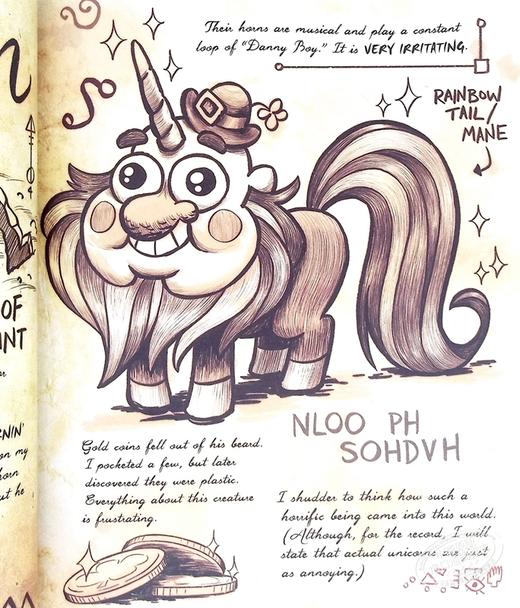 Their horns are musical and play a constant
loop of "Danny Boy." It is VERY IRRITATING.
RAINBOW
TAIL/
MANE
OF
NT
NLOO PH
SOHDVH
Gold coins fell out of his beard.
I pocketed a few, but later
discovered they were plastic.
Everything about this creature
is frustrating.
I shudder to think how such a
horrific being came into this world.
(Although, for the record, I will
state that actual unicorns are just
as annoying.)